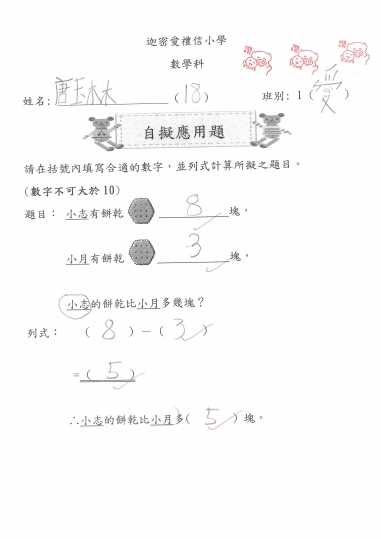 迦密愛禮信小學
數學科
姓名: 唐玉林 (18) 班別: 1 (愛)
自擬應用題
請在括號內填寫合適的數字，並列式計算所擬之題目。
(數字不可大於10)
題目： 小志有餅乾 8 塊，
小月有餅乾 3 塊，
小志的餅乾比小月多幾塊？
列式： (8)－(3)
=(5)
∴小志的餅乾比小月多(5)塊。